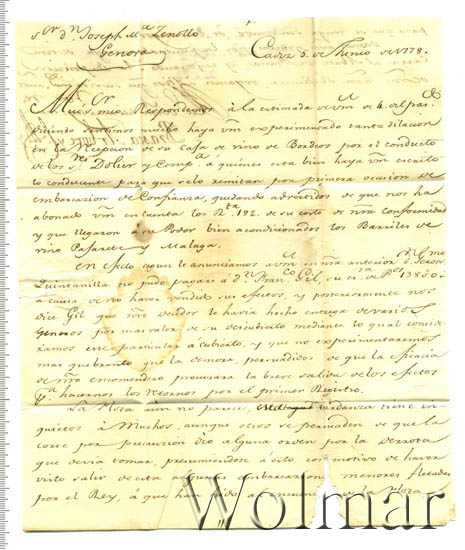 Sr. Dn. Joseph Ma. Zenollo
Genova
Cadiz 5. de Junio de 1778.
Muy Sr. mio: Respondemos à la estimada de Vm de 4. del pas-
diciendo sentimos mucho haya Vm experimentado tanta dilacion
en la recepcion de su casa de vino de Bordeos por el conducto
de los Sres. y Compa. à quienes esta bien haya Vm escrito
lo conducente para que se lo remitan por primera ocasion de
embarcacion de confianza, quedando advertidos de que nos ha
abonado Vm en cuenta los Rta. 192. de su costo de nra conformidad
y que llegaron a su Poder bien acondicionados los Barriles de
vino Pajarete y Malaga.
En efecto, segun le anunciamos à Vm en nra anterior Dn.
Quintanilla no pudo pagar à dn. Franco. Gil, su
à causa de no haver vendido sus efectos, y posteriormente nos
dice Gil que dho le havia hecho entrega de varios
Generos por mas valor de su descubierto mediante lo qual conside-
ramos este particular à cubierto, y que no experimentaremos
mas quebranto que la demora, persuadidos de que la eficacia
de dho encomendero procurara la breve salida de los efectos
pa. hacernos los retornos por el primer Registro.
La Flota aun no parece, tardanza tiene in-
quietos à Muchos, aunque otros se persuaden de que la
Corte por precaucion dio alguna orden por la derrota
que devia tomar, presumiendose à esto con motivo de haver
visto salir de esta algunas embarcaciones menores fletadas
por el Rey, à que han ido à encuentro de la Flota.
Wolmar